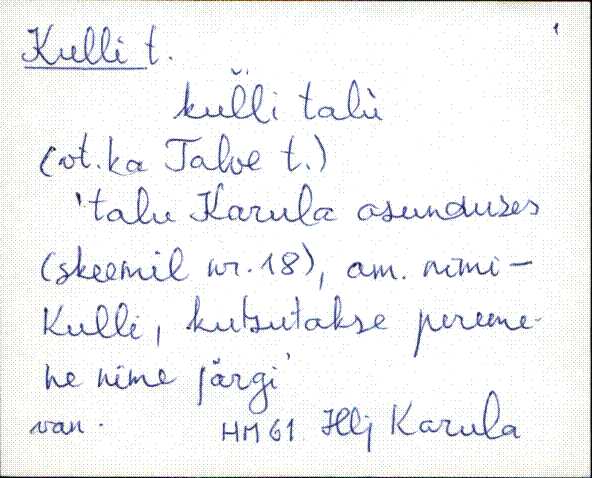 Kulli t.
kul̆li talù
(vt. ka Talve t.)
'talu Karula asunduses
(skeemil nr. 18), am. nimi –
Kulli, kutsutakse pereme-
he nime järgi'
van. HM 61 Hlj Karula